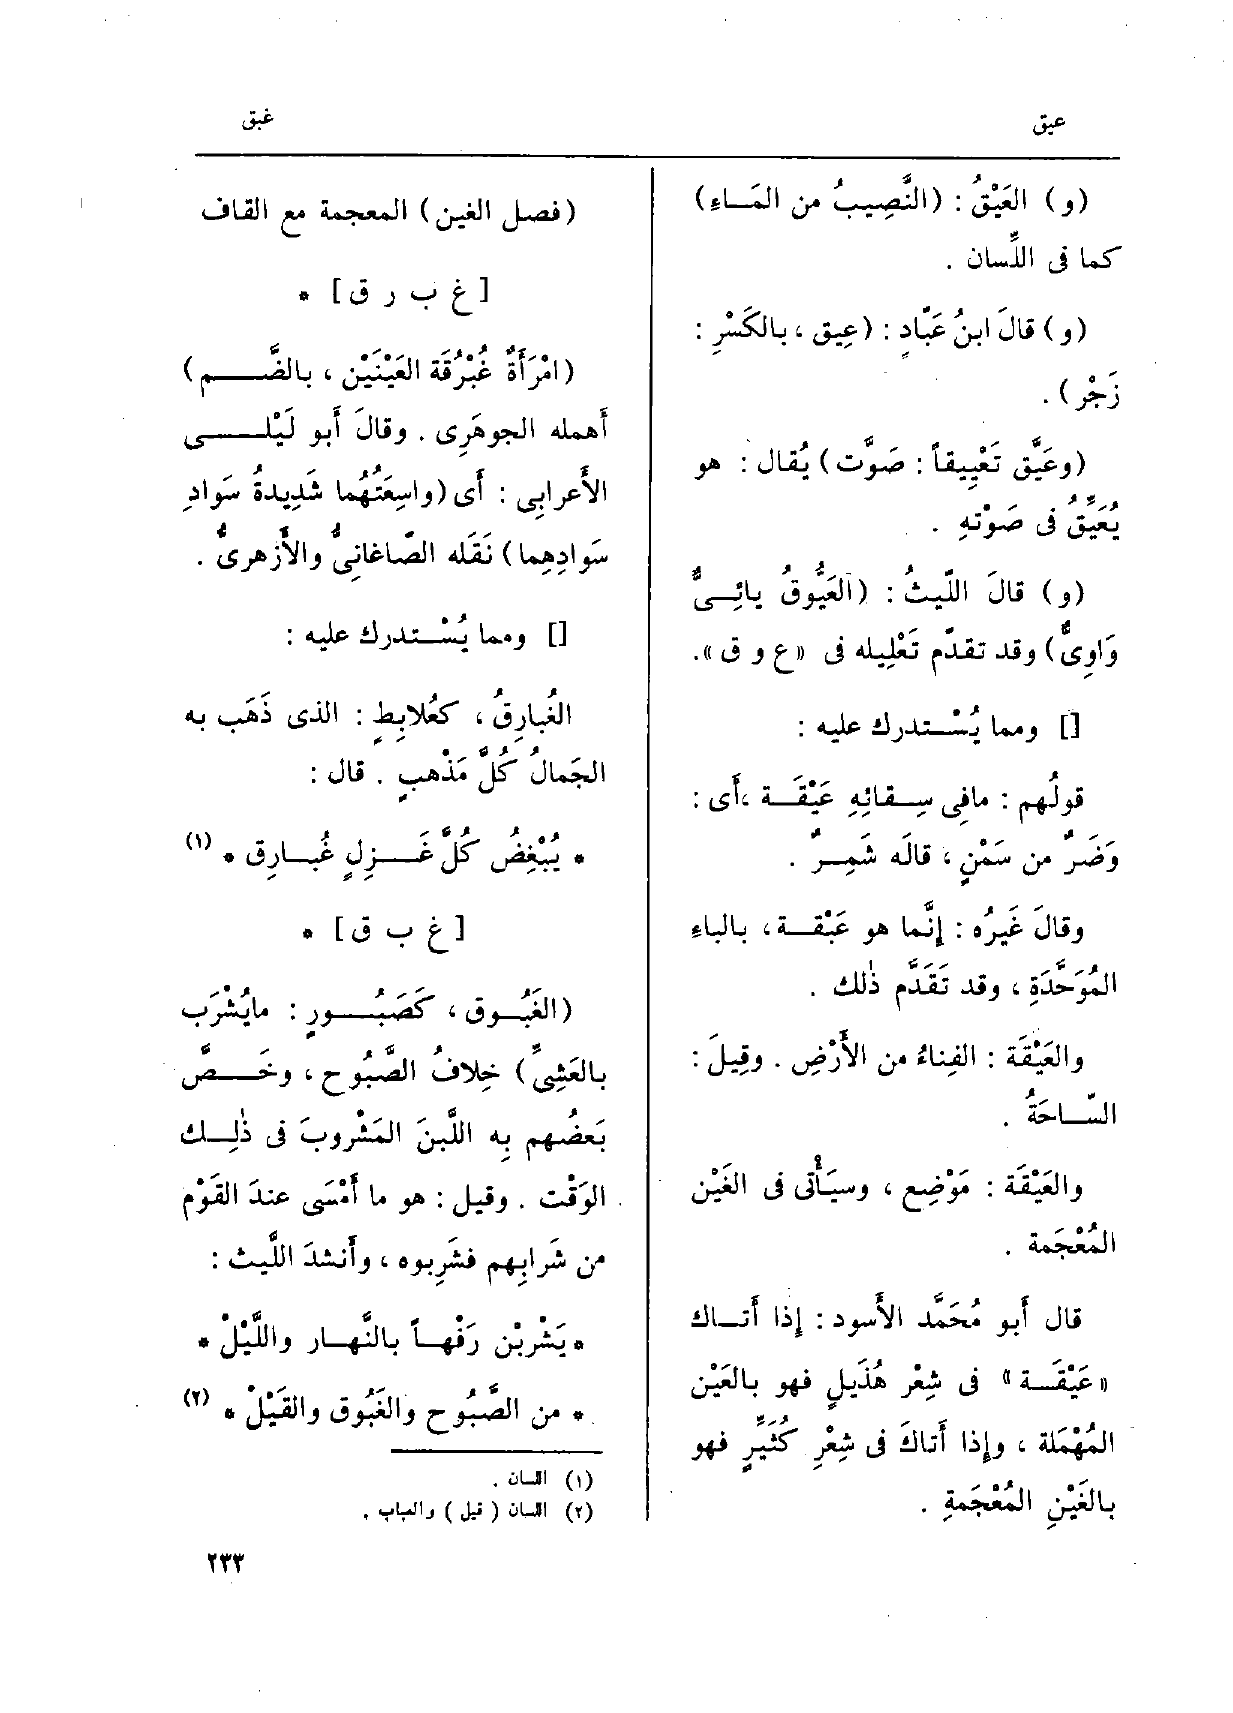 عيق
غبق
(و) العَيْقُ : (النَّصِيبُ من المَاءِ)
كما فى اللِّسان .
(و) قالَ ابنُ عَبّادٍ : (عِيق ، بالكَسْرِ :
زَجْر) .
(وعَيَّق تَعْيِيقاً : صَوَّت) يُقال : هو
يُعَيِّقُ فى صَوْتهِ .
(و) قالَ اللّيثُ : (العَيُّوقُ يائِىٌّ
وَاوِىٌّ) وقد تقدّم تَعْلِيله فى «ع و ق».
[] ومما يُسْتدرك عليه :
قولُهم : مافِى سِقائهِ عَيْقَة ،أى :
وَضَرٌ من سَمْنٍ ، قالَه شَمِرٌ .
وقالَ غَيرُه : إنَّما هو عَبْقة ، بالباءِ
المُوَحَّدَةِ ، وقد تَقَدَّم ذٰلك .
والعَيْقَة : الفِناءُ من الأَرْضِ . وقِيلَ :
السّاحَةُ .
والعَيْقَة : مَوْضِع ، وسيَأْتى فى الغَيْن
المُعْجَمة .
قال أَبو مُحَمَّد الأَسود : إذا أَتاك
«عَيْقَة» فى شِعْر هُذَيلٍ فهو بالعَيْن
المُهْمَلة ، وإذا أَتاكَ فى شِعْرِ كُثَيِّرٍ فهو
بالغَيْنِ المُعْجَمةِ .
(فصل الغين) المعجمة مع القاف
[غ ب ر ق] *
(امْرَأَةٌ غُبْرُقة العَيْنَيْن ، بالضَّم)
أَهمله الجوهَرِى . وقالَ أَبو لَيْلى
الأَعرابِى : أَى (واسِعَتُهُما شَدِيدةُ سَوادِ
سَوادِهِما) نَقَله الصّاغانِىُّ والأَزهرىُّ .
[] ومما يُسْتدرك عليه :
الغُبارِقُ ، كعُلابِطٍ : الذى ذَهَب به
الجَمالُ كُلَّ مَذْهبٍ . قال :
* يُبْغِضُ كُلَّ غَزِلٍ غُبارِق * (١)
[غ ب ق] *
(الغَبُوق ، كَصَبُورٍ : مايُشْرَب
بالعَشِىِّ) خِلافُ الصَّبُوح ، وخَصَّ
بَعضُهم بِه اللَّبنَ المَشْروبَ فى ذٰلِك
الوَقْت . وقيل : هو ما أَمْسَى عندَ القَوْم
من شَرابِهم فشَرِبوه ، وأَنشدَ اللَّيث :
*يَشْرَبْن رَفْهاً بالنَّهار واللَّيْلْ *
* من الصَّبُوح والغَبُوق والقَيْلْ * (٢)
(١) اللسان .
(٢) اللسان (قيل) والعباب .
٢٣٣